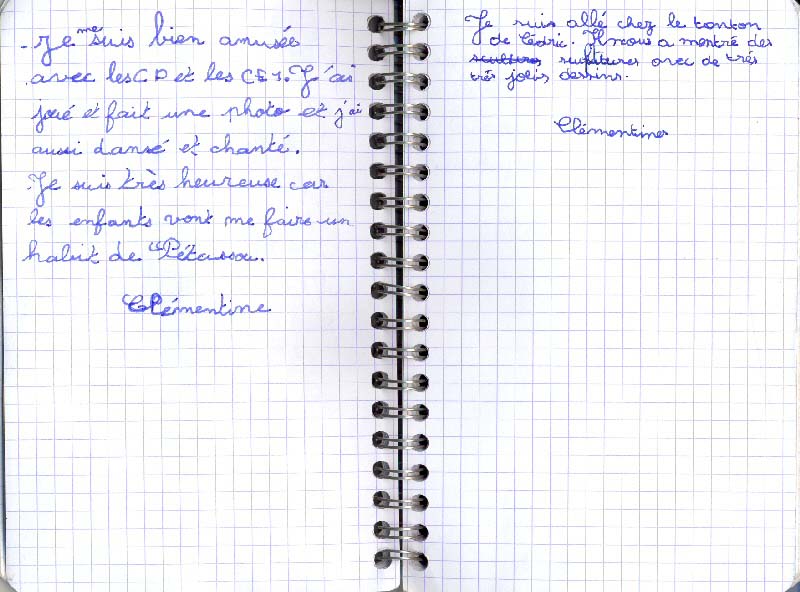 - Je me suis bien amusée
avec les CP et les CE1. J'ai
joué et fait une photo et j'ai
aussi dansé et chanté.
Je suis très heureuse car
les enfants vont me faire un
habit de "Pétassou.
Clémentine
Je suis allé chez le tonton
de Cédric. Il nous a montré des
avec de très
très jolis dessins.
Clémentine